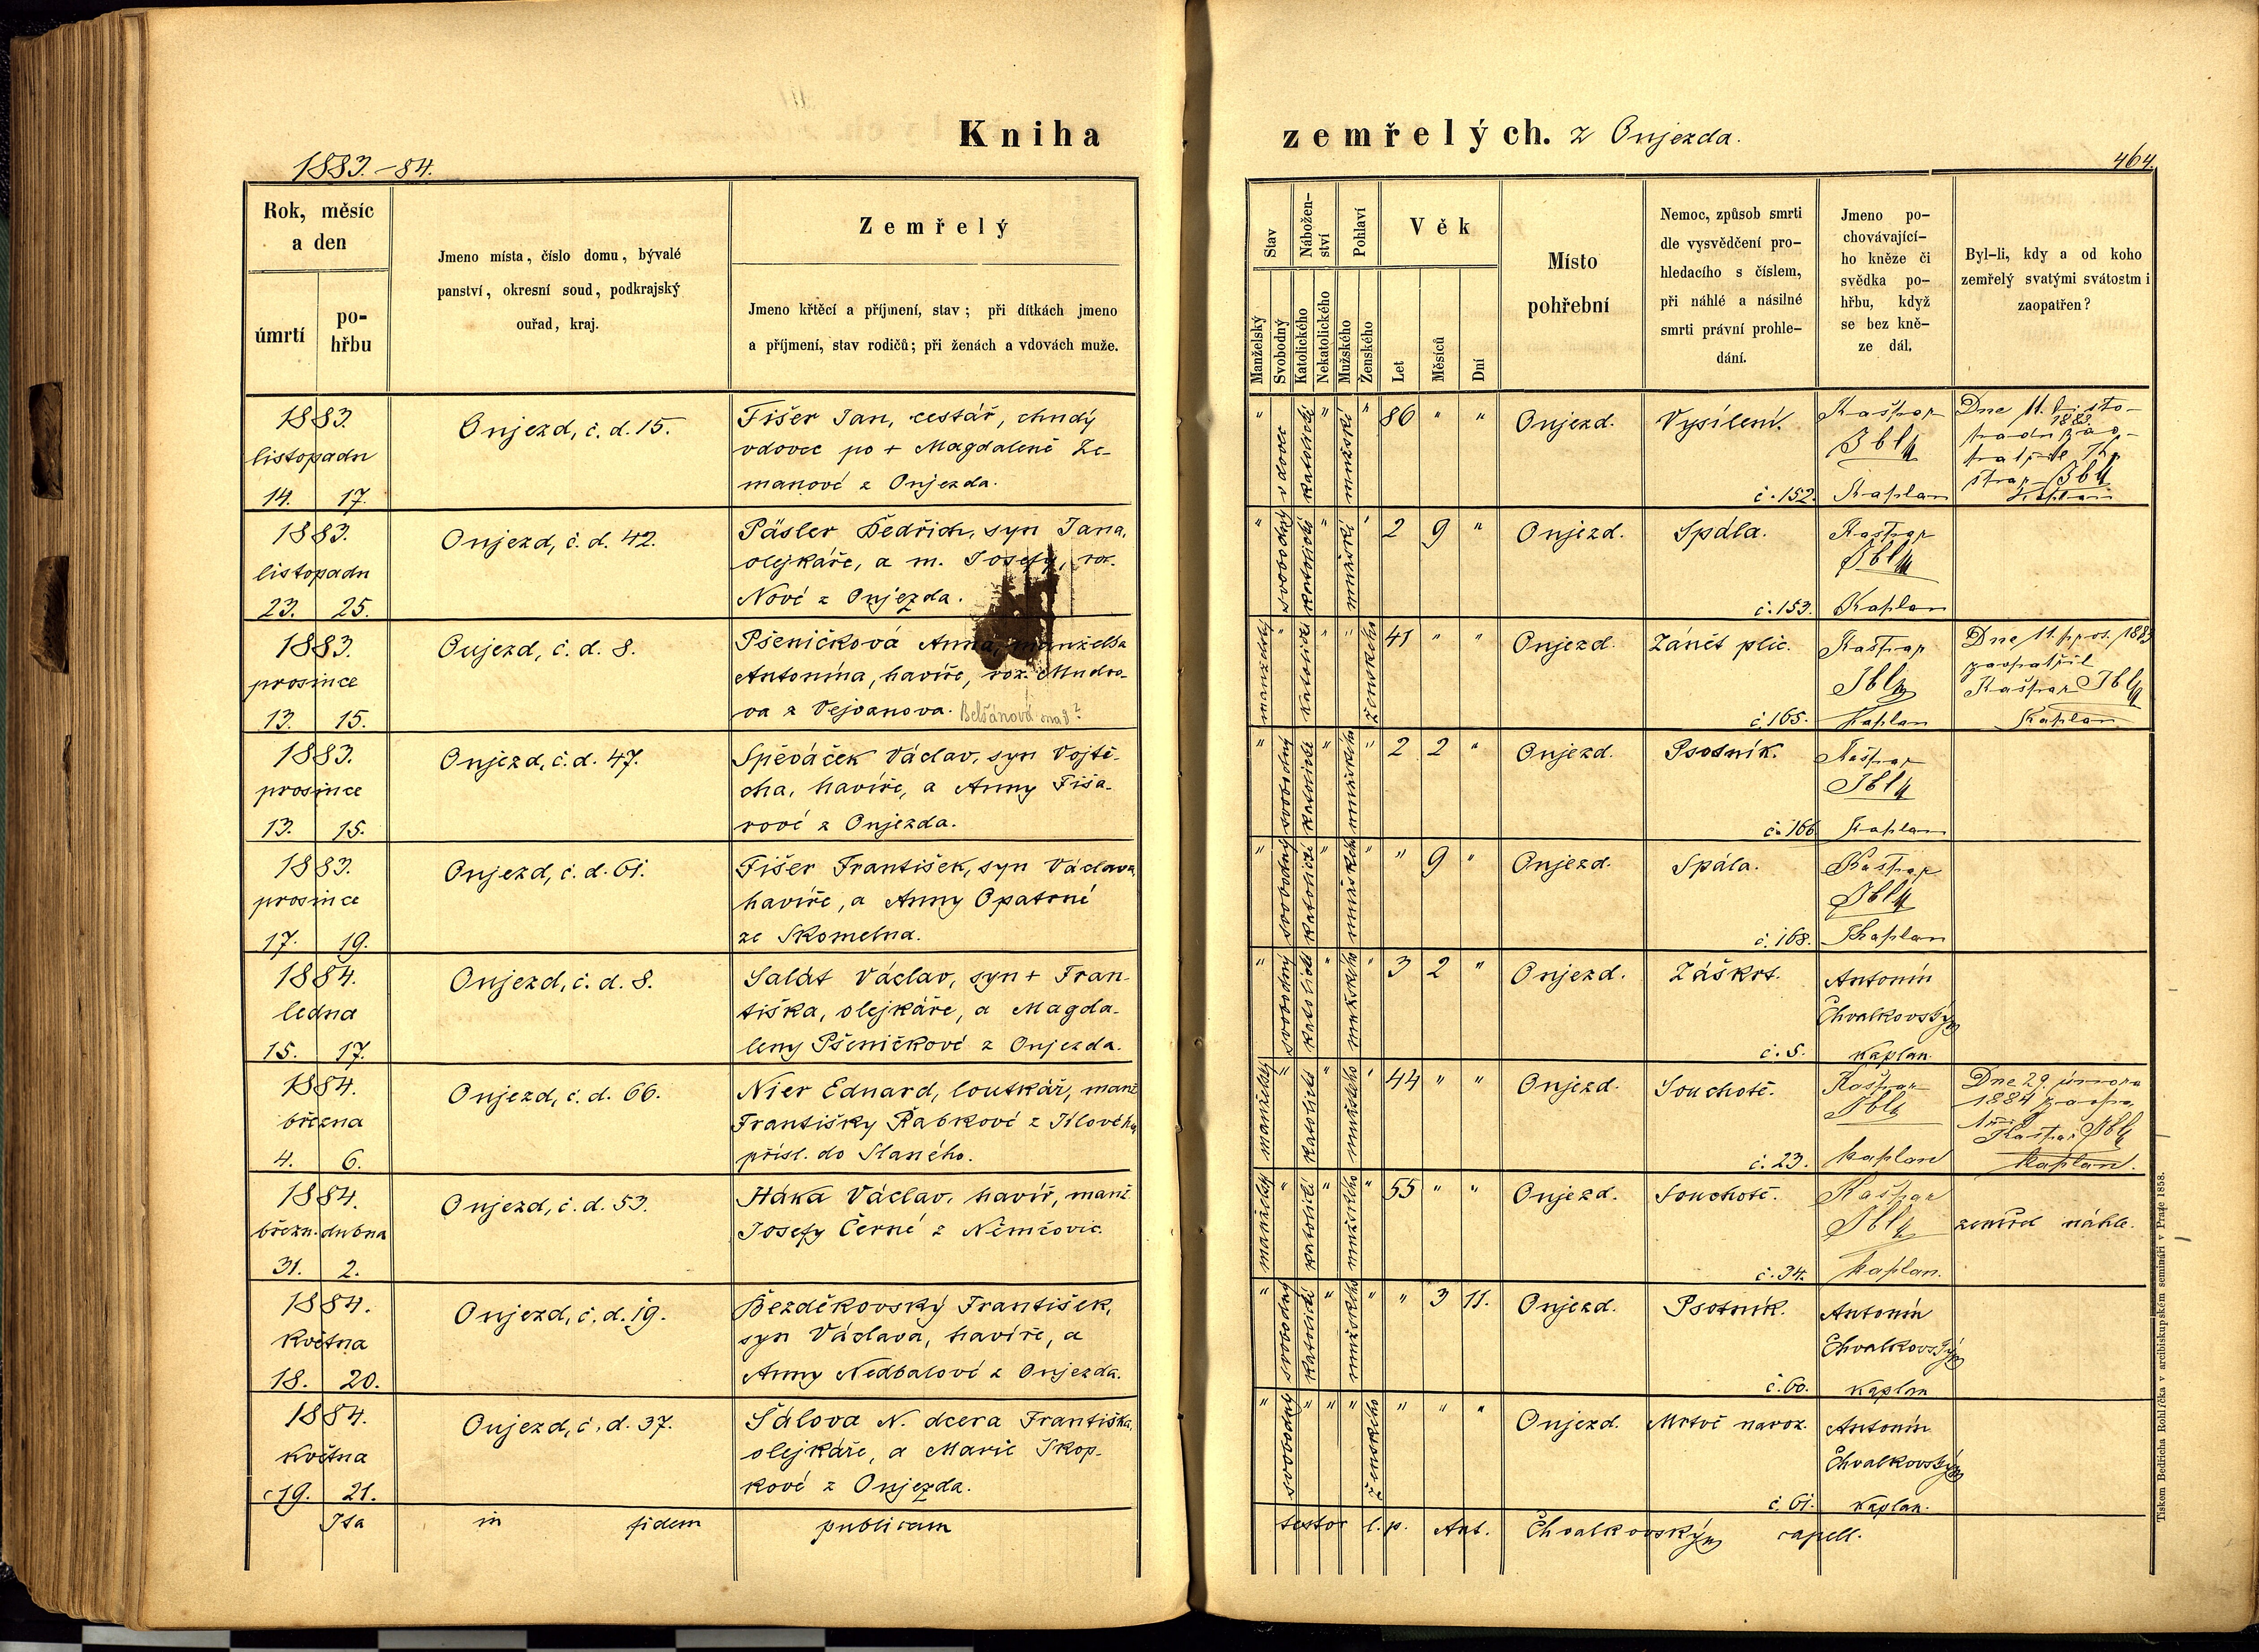 Kniha zemřelých. z Oujezda.
1883.-84.
464.
Rok, měsíc a den
úmrtí
po-hřbu
Jmeno místa, číslo domu, bývalé
panství, okresní soud, podkrajský
ouřad, kraj.
Zemřelý
Jmeno křtěcí a příjmení, stav; při dítkách jmeno
a příjmení, stav rodičů; při ženách a vdovách muže.
Stav
Manželský
Svobodný
Nábožen-ství
Katolického
Nekatolického
Pohlaví
Mužského
Ženského
Věk
Let
Měsíců
Dní
Místo
pohřební
Nemoc, způsob smrti
dle vysvědčení pro-
hledacího s číslem,
při náhlé a násilné
smrti právní prohle-
dání.
Jmeno po-
chovávající-
ho kněze či
svědka po-
hřbu, když
se bez kně-
ze dál.
Byl-li, kdy a od koho
zemřelý svatými svátostmi
zaopatřen?
1883.
listopadu
14. 17.
Oujezd, č. d. 15.
Fišer Jan, cestář, chudý
vdovec po + Magdaleně Ze-
manové z Oujezda.
" vdovec katolické " mužské " 86 " "
Oujezd.
Vysílení.
č. 152.
Kašpar
Jbl
Kaplan
Dne 11. listo-
1883.
Kaplan
1883.
listopadu
23. 25.
Oujezd, č. d. 42.
Päsler Bedřich, syn Jana,
olejkáře, a m. Josefy, roz.
Nové z Oujezda.
" svobodný katolické " mužské " 2 9 "
Oujezd.
Spála.
č. 153.
Kašpar
Jbl
Kaplan
1883.
prosince
13. 15.
Oujezd, č. d. 8.
Pšeničková Anna, manželka
Antonína, havíře, roz. Mudro-
va z Vejvanova. Belšánová snad?
manželský " katolické " " ženského 41 " "
Oujezd.
Zánět plic.
č. 165.
Kašpar
Jbl
Kaplan
Dne 11. pros. 1883
zaopatřil
Kašpar Jbl
Kaplan
1883.
prosince
13. 15.
Oujezd, č. d. 47.
Spěváček Václav, syn Vojtě-
cha, havíře, a Anny Fiša-
rové z Oujezda.
" svobodný katolické " mužského " 2 2 "
Oujezd.
Psotník.
č. 166
Kašpar
Jbl
Kaplan
1883.
prosince
17. 19.
Oujezd, č. d. 61.
Fišer František, syn Václava
havíře, a Anny Opatrné
ze Skomelna.
" svobodný katolické " mužského " " 9 "
Oujezd.
Spála.
č. 168.
Kašpar
Jbl
Kaplan
1884.
ledna
15. 17.
Oujezd, č. d. 8.
Salát Václav, syn + Fran-
tiška, olejkáře, a Magda-
leny Pšeničkové z Oujezda.
" svobodný katolické " mužského " 3 2 "
Oujezd.
Záškrt.
č. 5.
Antonín
Chvalkovský
kaplan.
1884.
března
4. 6.
Oujezd, č. d. 66.
Nier Eduard, loutkář, manž
Františky Řabkové z Jílového
přísl. do Slaného.
manželský " katolické " mužského " 44 " "
Oujezd.
Souchotě.
č. 23.
Kašpar
Jbl
kaplan
Dne 29. února
1884
Kašpar Jbl
kaplan.
1884.
březn. dubna
31. 2.
Oujezd, č. d. 53.
Háka Václav, havíř, manž.
Josefy Černé z Němčovic.
manželský " katolické " mužského " 55 " "
Oujezd.
Souchotě.
č. 34.
Kašpar
Jbl
kaplan.
zemřel náhle.
1884.
května
18. 20.
Oujezd, č. d. 19.
Bezděkovský František,
syn Václava, havíře, a
Anny Nedbalové z Oujezda.
" svobodný katolické " mužského " " 3 11.
Oujezd.
Psotník.
č. 60.
Antonín
Chvalkovský
kaplan
1884.
května
19. 21.
Oujezd, č. d. 37.
Sálova N. dcera Františka,
olejkáře, a Marie Škop-
kové z Oujezda.
" svobodný " " " ženského " " "
Oujezd.
Mrtvě naroz.
č. 61.
Antonín
Chvalkovský
kaplan.
Ita in fidem publicam testor l. p. Ant. Chvalkovský capell.
Tiskem Bedřicha Rohlíčka v arcibiskupském semináři v Praze 1858.